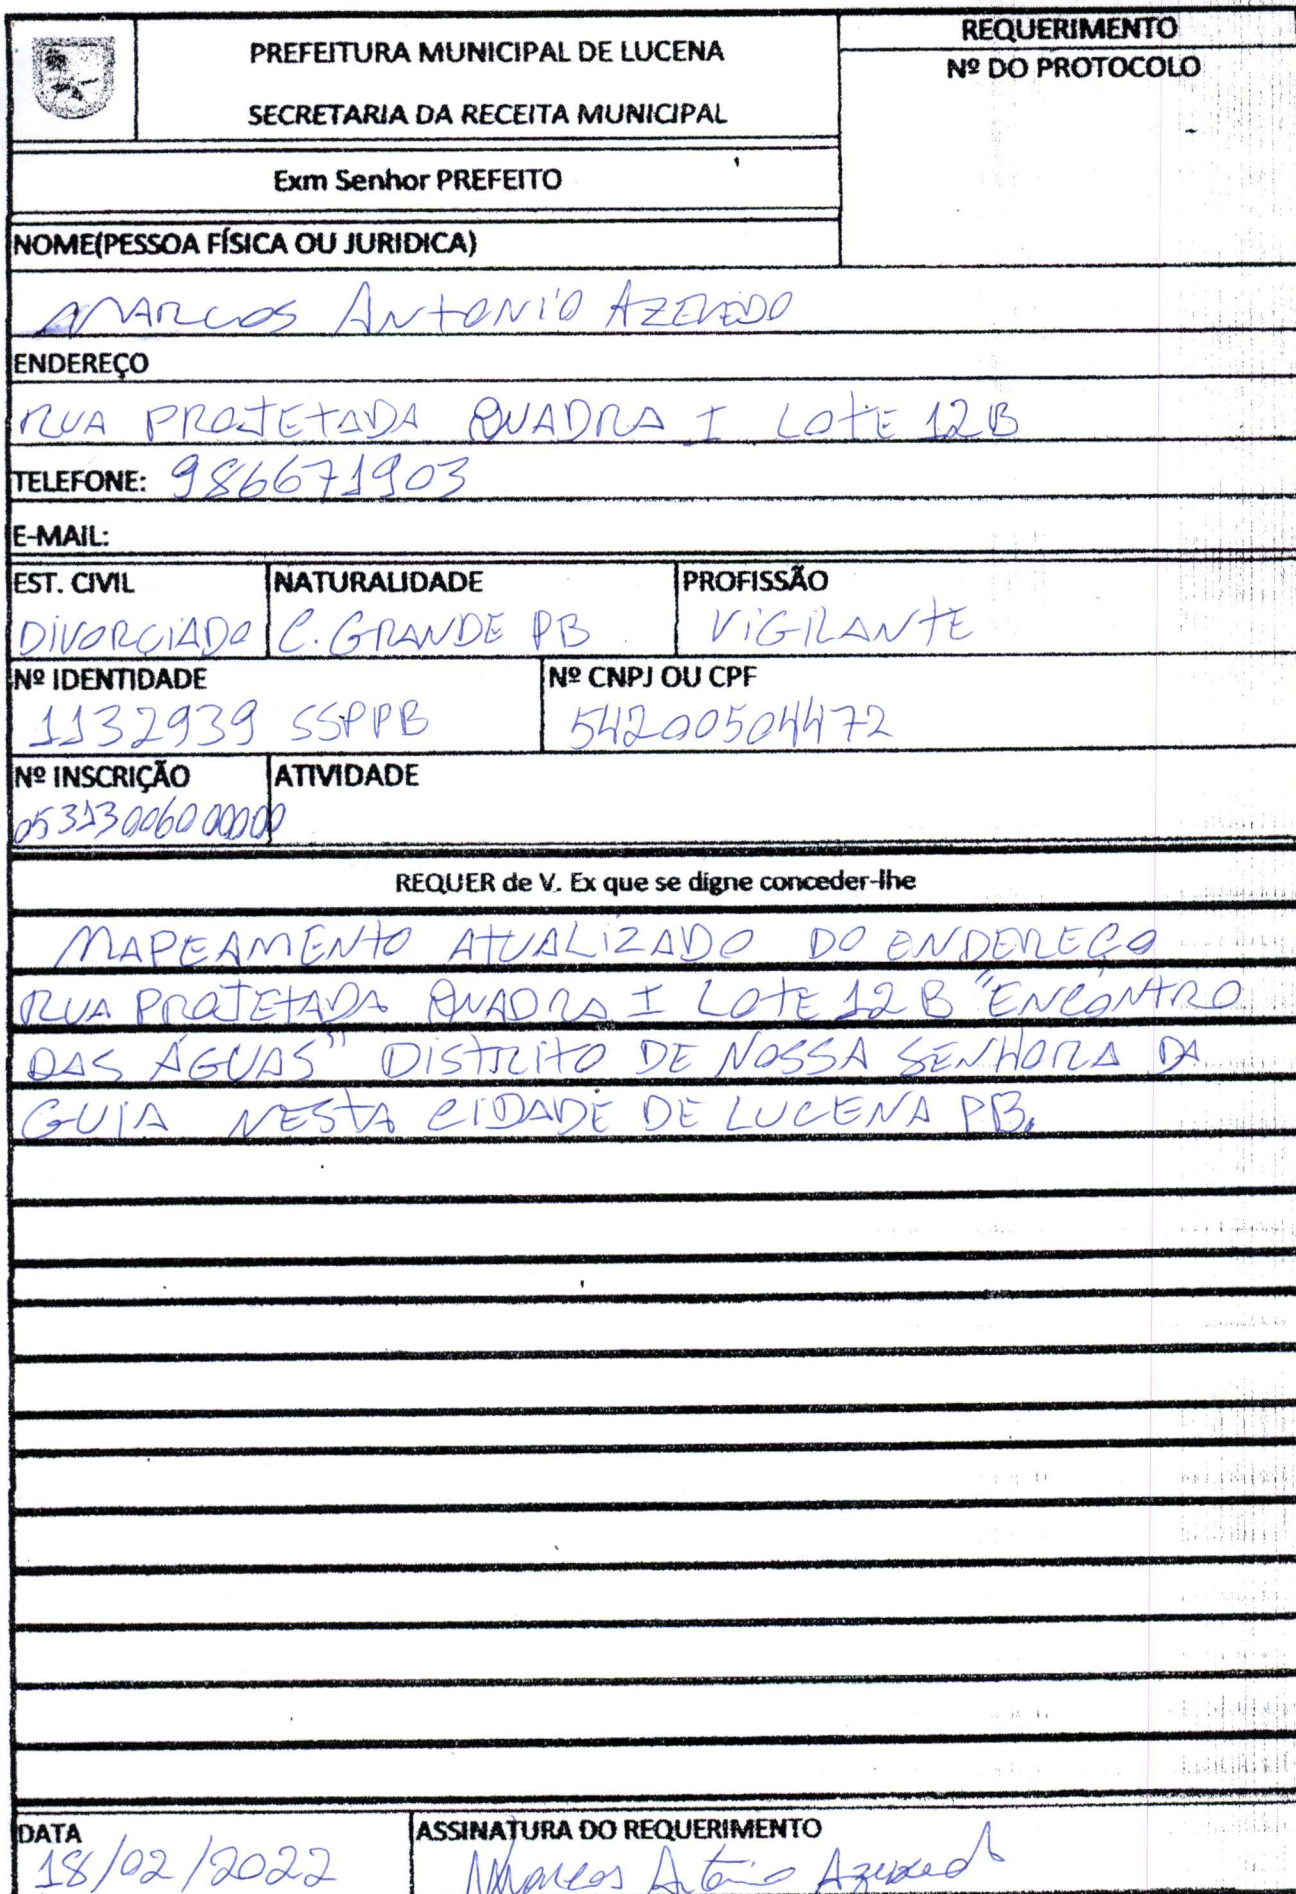 PREFEITURA MUNICIPAL DE LUCENA
SECRETARIA DA RECEITA MUNICIPAL
REQUERIMENTO
Nº DO PROTOCOLO
Exm Senhor PREFEITO
NOME(PESSOA FÍSICA OU JURIDICA)
MARCOS ANTONIO AZEVEDO
ENDEREÇO
RUA PROJETADA QUADRA I LOTE 12B
TELEFONE: 986671903
E-MAIL:
EST. CIVIL NATURALIDADE PROFISSÃO
DIVORCIADO C. GRANDE PB VIGILANTE
Nº IDENTIDADE Nº CNPJ OU CPF
1132939 SSPPB 54200504472
Nº INSCRIÇÃO ATIVIDADE
05313006000000
REQUER de V. Ex que se digne conceder-lhe
MAPEAMENTO ATUALIZADO DO ENDEREÇO
RUA PROJETADA QUADRA I LOTE 12 B "ENCONTRO
DAS ÁGUAS" DISTRITO DE NOSSA SENHORA DA
GUIA NESTA CIDADE DE LUCENA PB.
DATA ASSINATURA DO REQUERIMENTO
18/02/2022 Marcos Antonio Azevedo